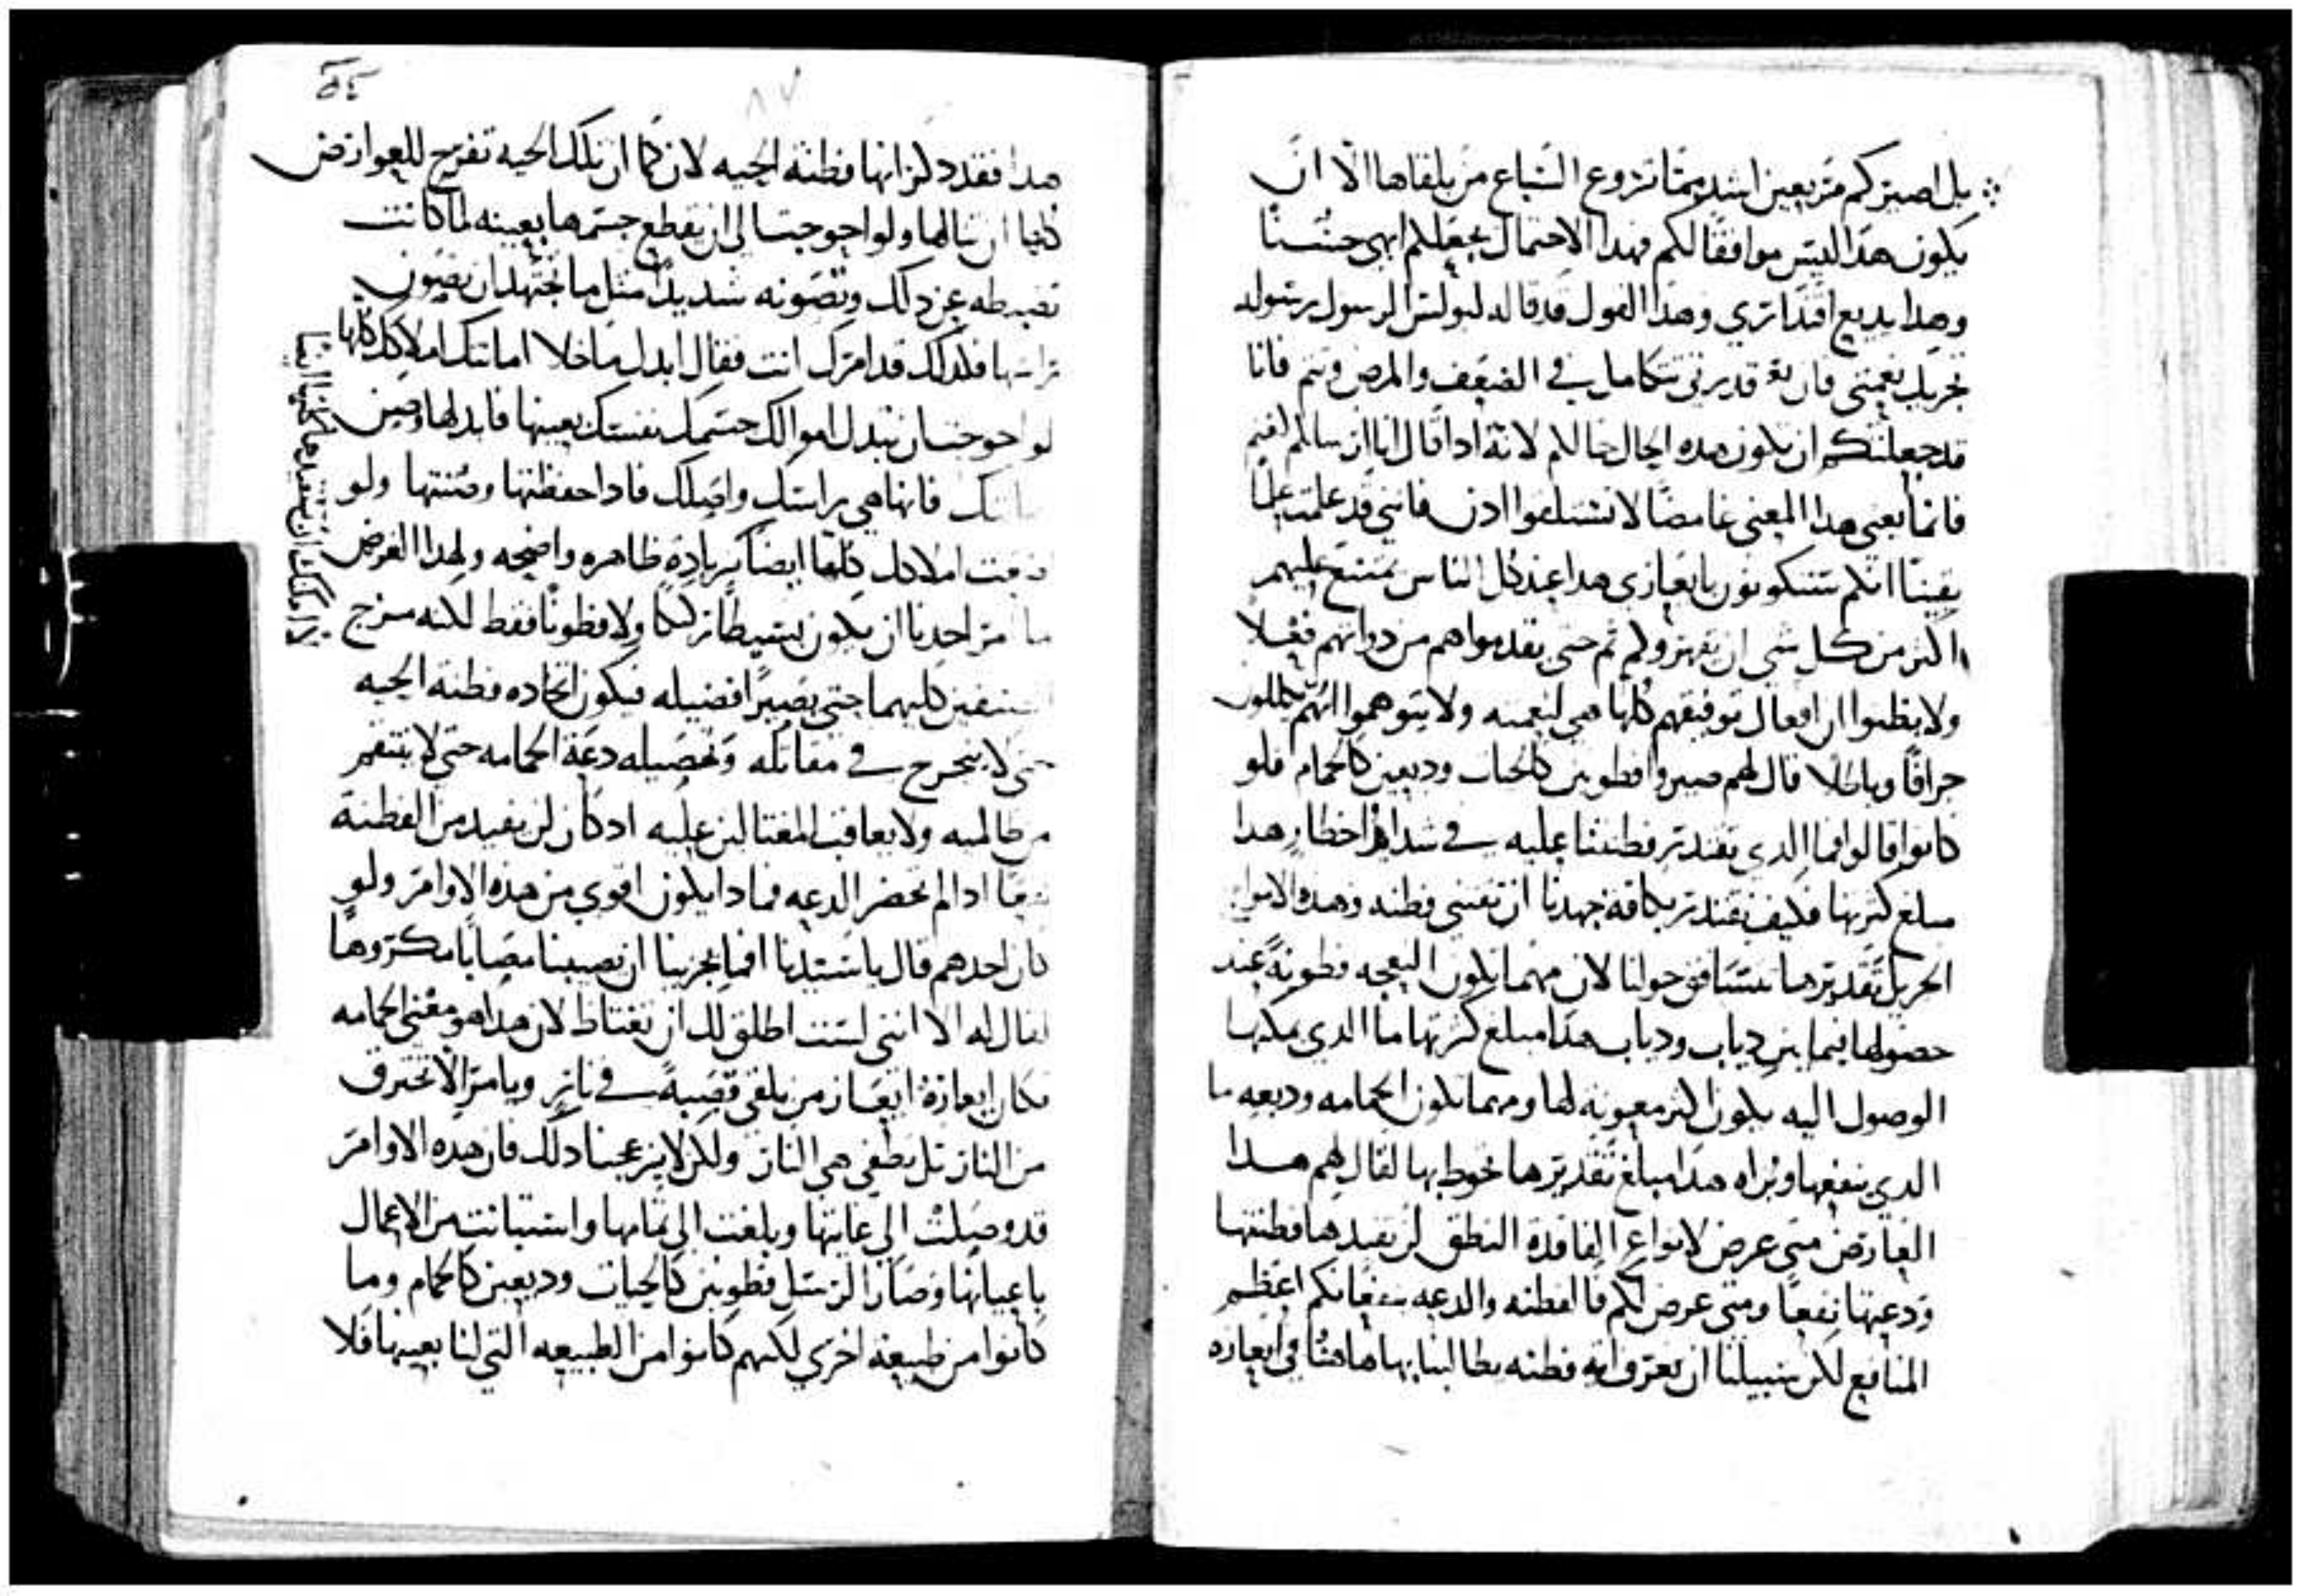 بل اصيركم مريعين اشد مما تروع السباع من يلقاها الا ان
يكون هذا ليس موافقا لكم فهدا الاحتمال يجعلكم ابهى حسنا
وهدا بديع اقتداري وهدا القول قد قاله لبولس الرسول رسوله
تجزيك نعمتي فان قدرتي تتكامل في الضعف والمرض وتتم فانا
قد جعلتكم ان تكون هده الحال حالكم لانه ادا قال انا ارسلكم كغنم
فانما يعني هدا المعنى غامضا لا تستلقوا ادن فانني قد علمت علما
يقينا انكم ستكونون بايعازي هدا عند كل الناس يمتنع عليهم
اكثر من كل شي ان تقهروا ولكم ثم حتى يقدموا هم من دواتهم فعلا
ولا يظنوا ان افعال توفيقهم كلها هي لنعمته ولا يتوهموا انهم يكللون
جزافا وباطلا قال لهم صيروا فطونين كالحيات وديعين كالحمام فلو
كانوا قالوا فما الدي تقتدر فطنتنا عليه في شدايد اخطار هدا
مبلغ كثرتها فكيف نقتدر بكافة جهدنا ان نقتني فطنه وهده الامواج
الجزيل تقديرها تتسافق حولنا لان مهما تكون النعجه فطونة عند
حصولها فيما بين دياب ودياب هدا مبلغ كثرتها ما الدي يمكنها
الوصول اليه يكون اكثر معونه لها ومهما تكون الحمامه وديعه ما
الدي ينفعها وبزاه هدا مبلغ تقديرها تحوط بها لقال لهم هدا
العارض متى عرض لانواع الفاقدة النطق لن يفيدها فطنتها
ودعتها نفعا ومتى عرض لكم فالفطنه والدعه ينفعانكم اعظم
المنافع لكن سبيلنا ان نعرف ايه فطنه يطالبنا بها هاهنا في ايعازه
هدا فقد دكر انها فطنة الحيه لان كما ان تلك الحيه تفرج للعوارض
كلها ان تنالها ولو احوجت الى ان يقطع جسمها بعينه لما كانت
تضبطه عن دلك وتصونه شديدا مثل ما تجتهد ان تصون
راسها فكدلك قد امرك انت فقال ابدل ما خلا امانتك املاكك كلها
لو احوجت ان تبدل اموالك جسمك نفسك بعينها فابدلها وصن
امانتك فانها هي راسك واصلك فادا حفظتها وصنتها ولو
ضيعت املاكك كلها ايضا بزيادة ظاهره واضحه ولهدا الغرض
لانك تمكنك ان تستفيدها كلها ايضا
ما امر احدنا ان يكون بسيطا زككا ولا فطونا فقط لكنه مزج
الصنفين كليهما حتى يصيرا فضيله فيكون اتخاده فطنة الحيه
حتى لا يجرح في مقاتله وتحصيله دعة الحمامه حتى لا ينتقم
من ظالميه ولا يعاقب المغتالين عليه اد كان لن يفيد من الفطنة
شيا ادا لم تحضر الدعه فمادا يكون اقوى من هده الاوامر ولو
كان احدهم قال يا سيدنا افما يجزينا ان تصيبنا مصايبا مكروها
لقال له الا انني لست اطلق لك ان تغتاظ لان هدا هو معنى الحمامه
فكان ايعازه ايعاز من يلقي قصبة في نار ويامر الا تحترق
من النار بل يطفي هي النار ولكن لا يزعجنا دلك فان هده الاوامر
قد وصلت الى غايتها وبلغت الى تمامها واستبانت من الاعمال
باعيانها وصار الرسل فطونين كالحيات وديعين كالحمام وما
كانوا من طبيعة اخرى لكنهم كانوا من الطبيعه التي لنا بعينها فلا